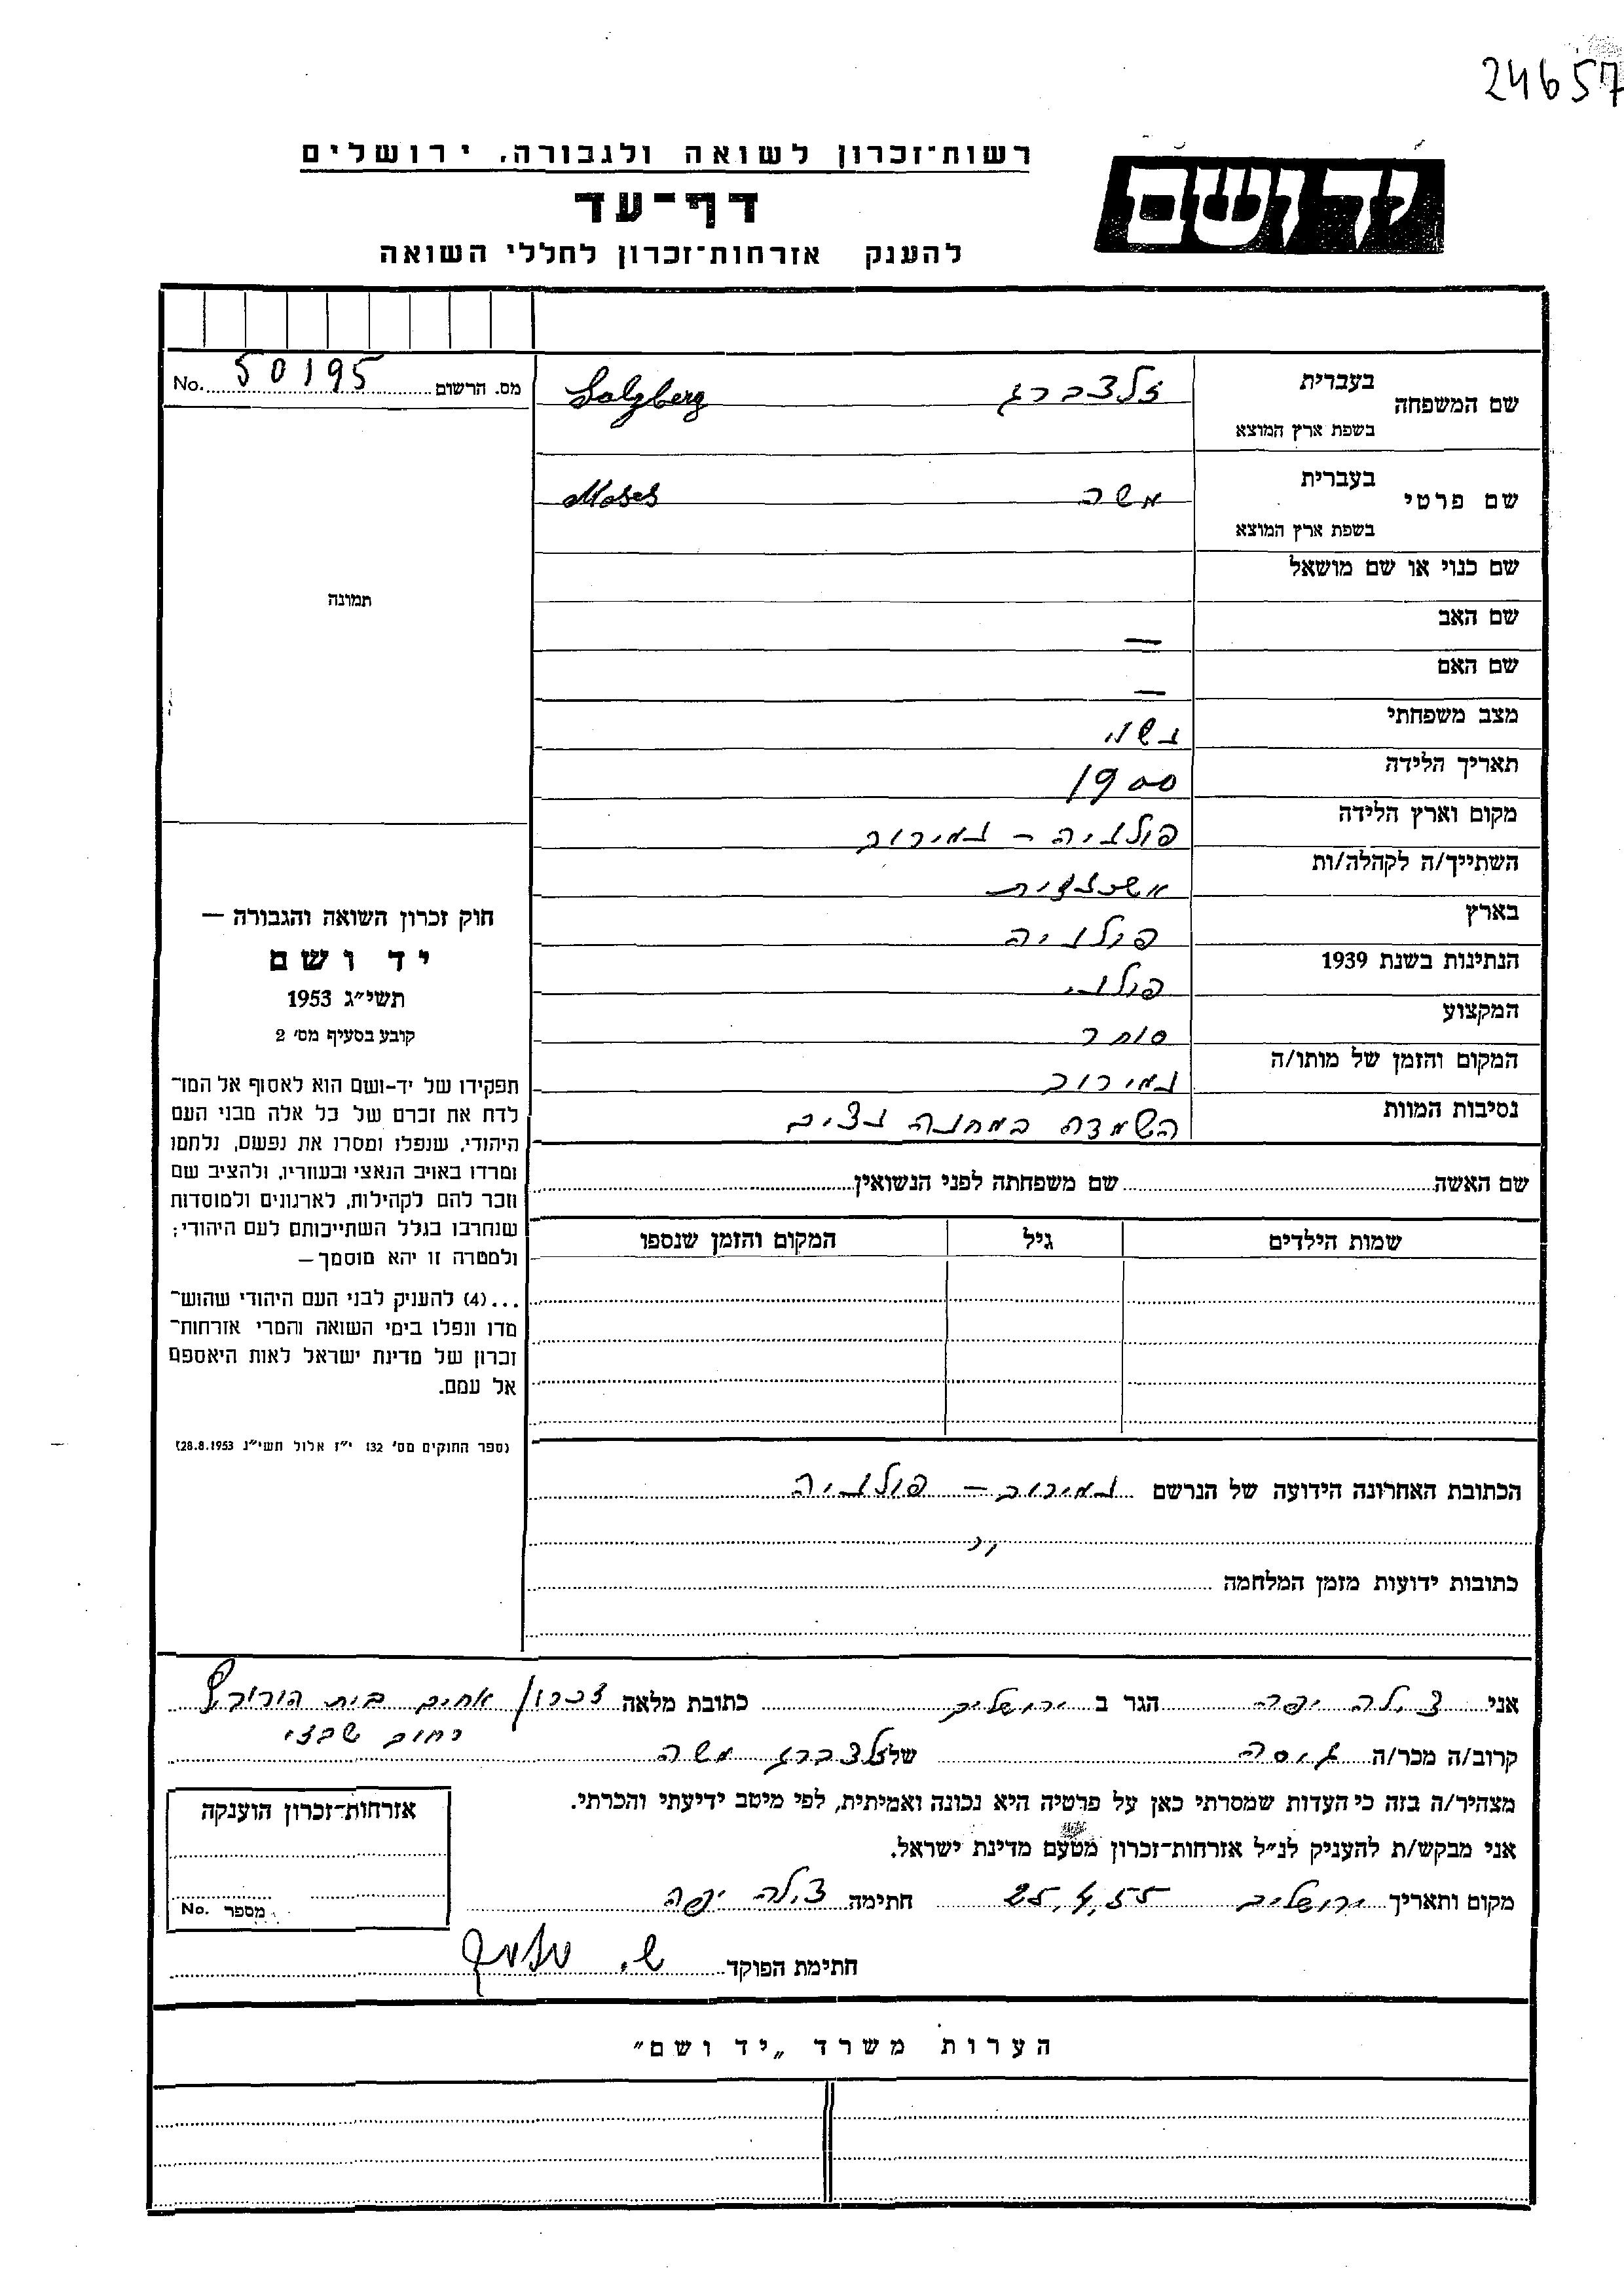 24657
רשות־זכרון לשואה ולגבורה, ירושלים
יד ושם
דף-עד
להענק אזרחות־זכרון לחללי השואה
מס. הרשום 50195 No.
תמונה
חוק זכרון השואה והגבורה —
יד ושם
תשי״ג 1953
קובע בסעיף מס׳ 2
תפקידו של יד-ושם הוא לאסוף אל המו־
לדת את זכרם של כל אלה מבני העם
היהודי, שנפלו ומסרו את נפשם, נלחמו
ומרדו באויב הנאצי ובעוזריו, ולהציב שם
וזכר להם לקהילות, לארגונים ולמוסדות
שנחרבו בגלל השתייכותם לעם היהודי;
ולמטרה זו יהא מוסמך —
...(4) להעניק לבני העם היהודי שהוש־
מדו ונפלו בימי השואה והמרי אזרחות־
זכרון של מדינת ישראל לאות היאספם
אל עמם.
(ספר החוקים מס׳ 132 י״ז אלול תשי״ג 28.8.1953)
שם המשפחה בעברית זלצברג Salzberg
בשפת ארץ המוצא
שם פרטי בעברית משה Moses
בשפת ארץ המוצא
שם כנוי או שם מושאל
שם האב —
שם האם —
מצב משפחתי נשוי
תאריך הלידה 1900
מקום וארץ הלידה פולניה - נמירוב
השתייך/ה לקהלה/ות אשכנזית
בארץ פולניה
הנתינות בשנת 1939 פולני
המקצוע סוחר
המקום והזמן של מותו/ה נמירוב
נסיבות המוות השמדה במחנה נצים
שם האשה שם משפחתה לפני הנשואין
שמות הילדים גיל המקום והזמן שנספו
הכתובת האחרונה הידועה של הנרשם נמירוב - פולניה
כתובות ידועות מזמן המלחמה
אני צילה יפה הגר ב ירושלים כתובת מלאה זכרון אחים בית
רחוב שבזי
קרוב/ה מכר/ה גיסה של זלצברג משה
מצהיר/ה בזה כי העדות שמסרתי כאן על פרטיה היא נכונה ואמיתית, לפי מיטב ידיעתי והכרתי.
אני מבקש/ת להעניק לנ״ל אזרחות־זכרון מטעם מדינת ישראל.
מקום ותאריך ירושלים 25.4.55 חתימה צילה יפה
חתימת הפוקד ש.
אזרחות־זכרון הוענקה
מספר No.
הערות משרד „יד ושם״